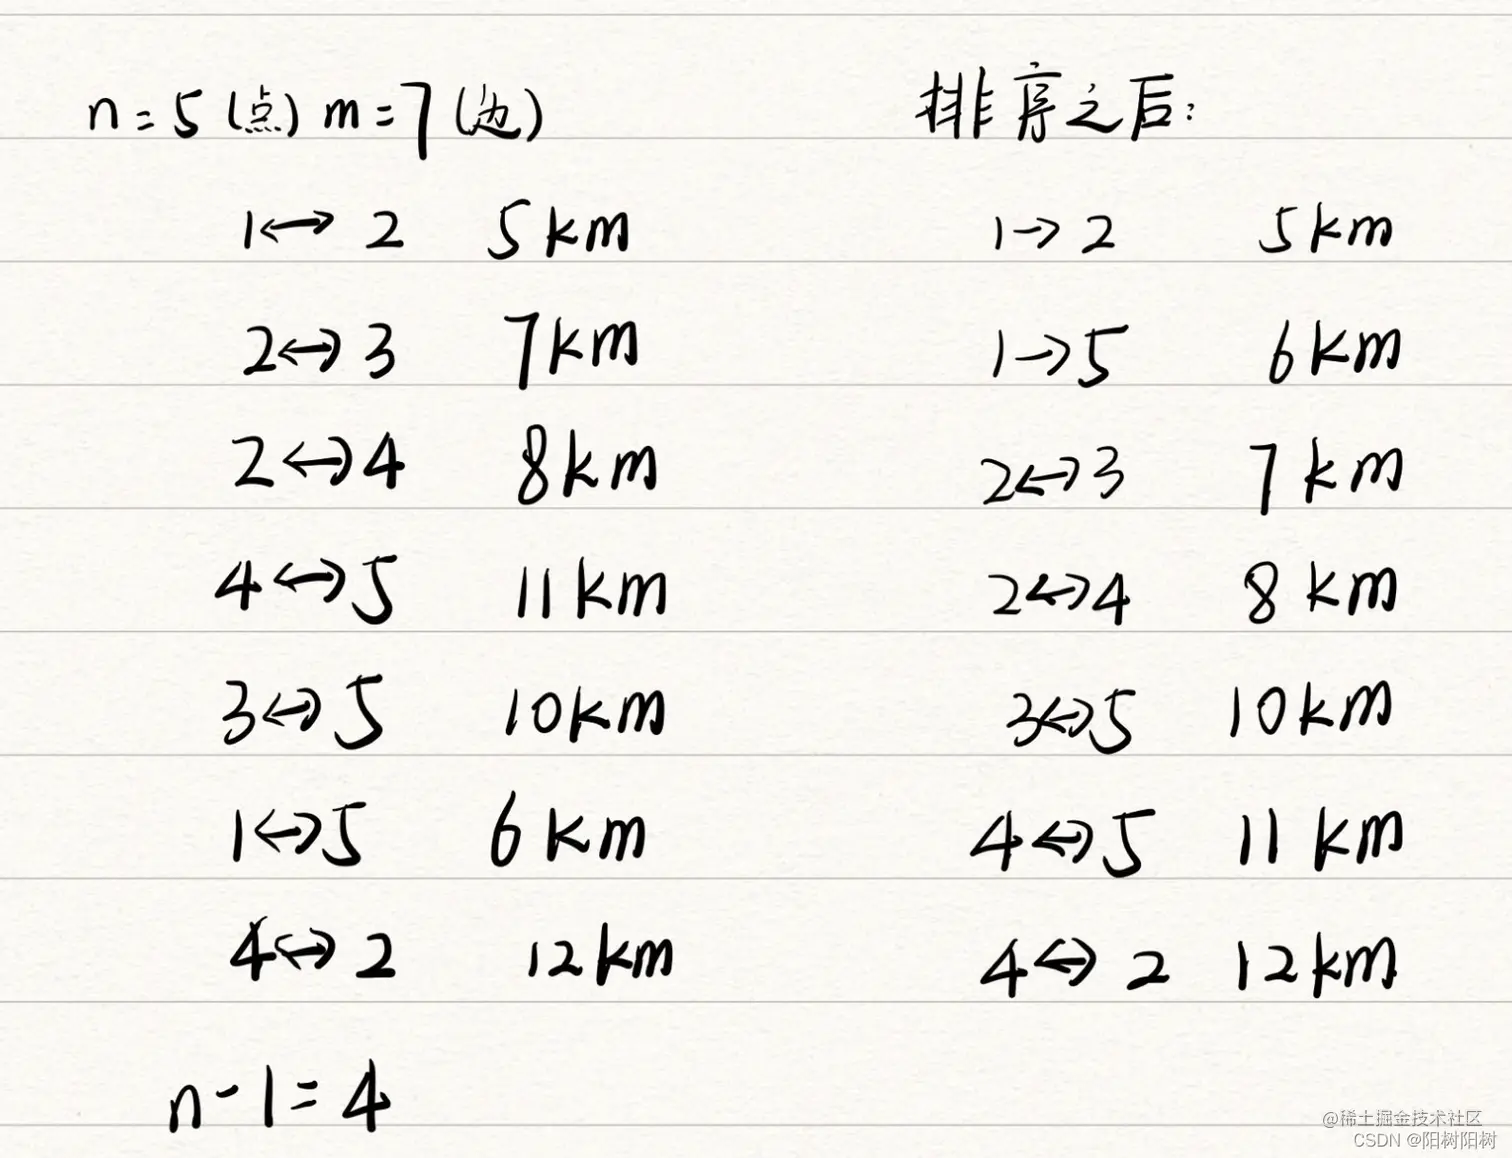 n=5(点) m=7(边)
1↔2 5km
2↔3 7km
2↔4 8km
4↔5 11km
3↔5 10km
1↔5 6km
4↔2 12km
n-1=4
排序之后:
1→2 5km
1→5 6km
2↔3 7km
2↔4 8km
3↔5 10km
4↔5 11km
4↔2 12km
@稀土掘金技术社区
CSDN @阳树阳树